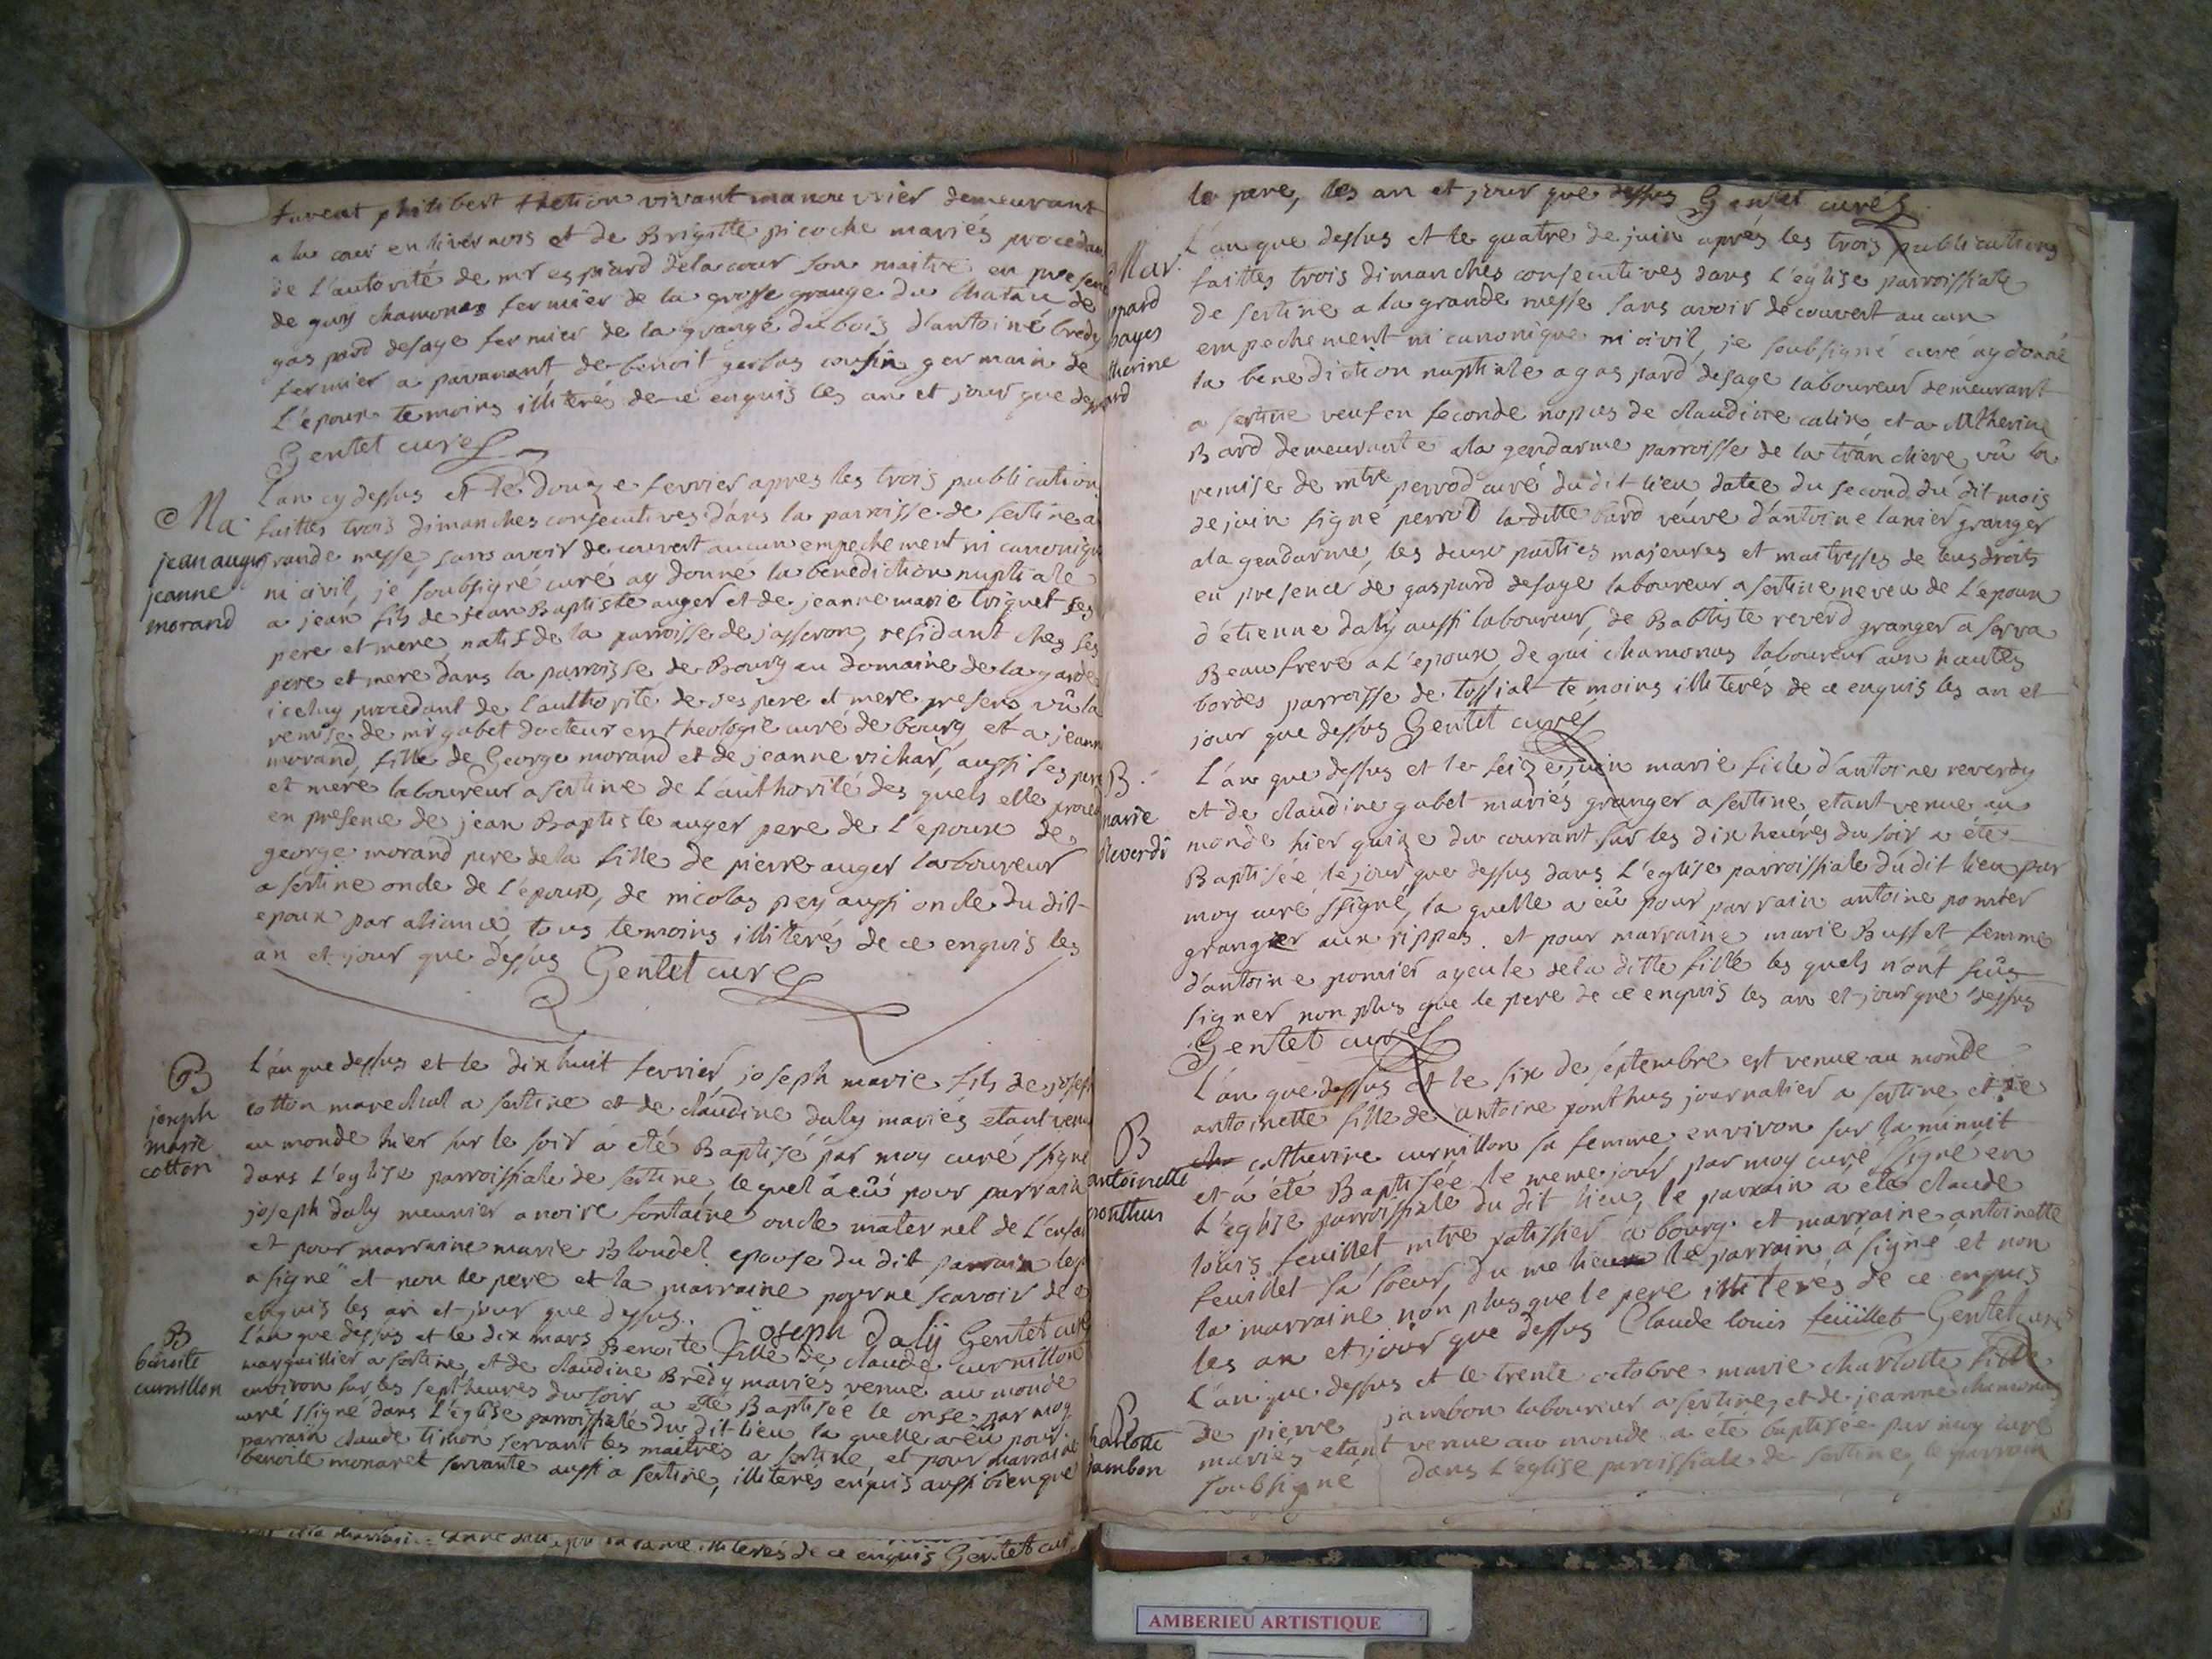 furent philibert thetion vivant manouvrier demeurant
a la cour en nivernois et de Brigitte picoche mariés procedan
de l'autorité de mr espiard delacour son maitre en presen
de guy chamonas fermier de la grosse grange du chatau de
gaspard desaye fermier de la grange dubois d'antoine bredy
fermier a de benoit cousin germain de
L'epoux temoins illiterés de ce enquis les an et jour que dessus
Gentet curé
Ma
jean auger
jeanne
morand
L'an cy dessus et le douze fevrier apres les trois publication
faittes trois dimanches consecutives dans la parroisse de sertine a
grande messe, sans avoir decouvert aucun empechement ni canoniqu
ni civil, je soubsigné curé ay donné la benediction nuptiale
a jean fils de jean Baptiste auger et de jeanne marie triquet ses
pere et mere, natif de la parroisse de jasseron, residant ches ses
pere et mere dans la parroisse de Bourg au domaine de la garde
iceluy procedant de l'authorité de ses pere et mere presens vû la
remise de mr gabet docteur en theologie curé de bourg, et a jeann
morand, fille de George morand et de jeanne vichar, aussi ses pere
et mere laboureur a sertine de L'authorité des quels elle proced
en presence de jean Baptiste auger pere de l'epoux de
george morand pere de la fille de pierre auger laboureur
a sertine oncle de l'epoux, de nicolas pey aussi oncle du dit
epoux par aliance, tous temoins illiterés de ce enquis les
an et jour que dessus Gentet curé
B
joseph
marie
cotton
L'an que dessus et le dix huit fevrier, joseph marie fils de joseph
cotton marechal a sertine et de claudine daly mariés etant venu
au monde hier sur le soir a eté Baptisé par moy curé ssigné
dans L'eglise parroissiale de sertine, lequel a eû pour parrain
joseph daly meunier a noire fontaine oncle maternel de L'enfan
et pour marraine marie Blondel epouse du dit parrain leq
a signé et non le pere et la marraine pour ne scavoir de ce
enquis les an et jour que dessus. Joseph Dalÿ Gentet curé
B
benoite
curnillon
L'an que dessus et le dix mars Benoite fille de claude curnillon
marguillier a sertine, et de claudine Bredy mariés venue au monde
environ sur les sept heures du soir a eté Baptisée le onse par moy
curé ssigné dans L'eglise parroissiale du dit lieu la quelle a eû pour
parrain claude tithon servant les maitres a sertine, et pour marraine
benoite monaret servante aussi a sertine, illiterés enquis aussi bien que
illiterés de ce enquis Gentet curé
le pere, les an et jour que dessus Gentet curé
Mar.
spard
sayes
therine
ard
L'an que dessus et le quatre de juin aprés les trois publications
faittes trois dimanches consecutives dans L'eglise parroissiale
de sertine a la grande messe sans avoir decouvert aucun
empechement ni canonique ni civil, je soubsigné curé ay donné
la benediction nuptiale a gaspard desaye laboureur demeurant
a sertine veuf en seconde nopces de claudine calin et a catherine
Bard demeurante a la gendarme parroisse de la tranchere, vû la
remise de mtre perrod curé du dit lieu datée du second du dit mois
de juin signé perrod la ditte bard veuve d'antoine lanier granger
a la gendarme, les deux parties majeures et maitresses de leus droits
en presence de gaspard desaye laboureur a sertine neveu de L'epoux
d'étienne daly aussi laboureur, de Babtiste reverd granger a serva
Beau frere a L'epoux, de gui chamonas laboureur aux hautes
bordes parroisse de tossiat temoins illiterés de ce enquis les an et
jour que dessus Gentet curé
B.
marie
Reverdi
L'an que dessus et le seize juin marie fille d'antoine reverdy
et de claudine gabet mariés granger a sertine, etant venue au
monde hier quinze du courant sur les dix heures du soir a été
Baptisée le jour que dessus dans L'eglise parroissiale du dit lieu par
moy curé ssigné, la quelle a eû pour parrain antoine pomier
granger aux rippes. et pour marraine marie Buffet femme
d'antoine pomier ayeule de la ditte fille les quels n'ont sûs
signer non plus que le pere de ce enquis les an et jour que dessus
Gentet curé
B
antoinette
ponthus
L'an que dessus et le six de septembre est venue au monde
antoinette fille de antoine ponthus journalier a sertine et de
catherine curnillon sa femme environ sur la minuit
et a été Baptisée le meme jour par moy curé ssigné en
L'eglise parroissiale du dit lieu, le parrain a été claude
louis feuillet mtre patissier a bourg et marraine antoinette
feuillet sa soeur, du me lieu le parrain a signé et non
la marraine non plus que le pere illiterés de ce enquis
les an et jour que dessus Claude louis feüillet Gentet curé
B
harlotte
jambon
L'an que dessus et le trente octobre marie charlotte fille
de pierre jambon laboureur a sertine, et de jeanne chamonas
mariés etant venue au monde a été baptisée par moy curé
soubsigné dans L'eglise parroissiale de sertine, le parrain
AMBERIEU ARTISTIQUE